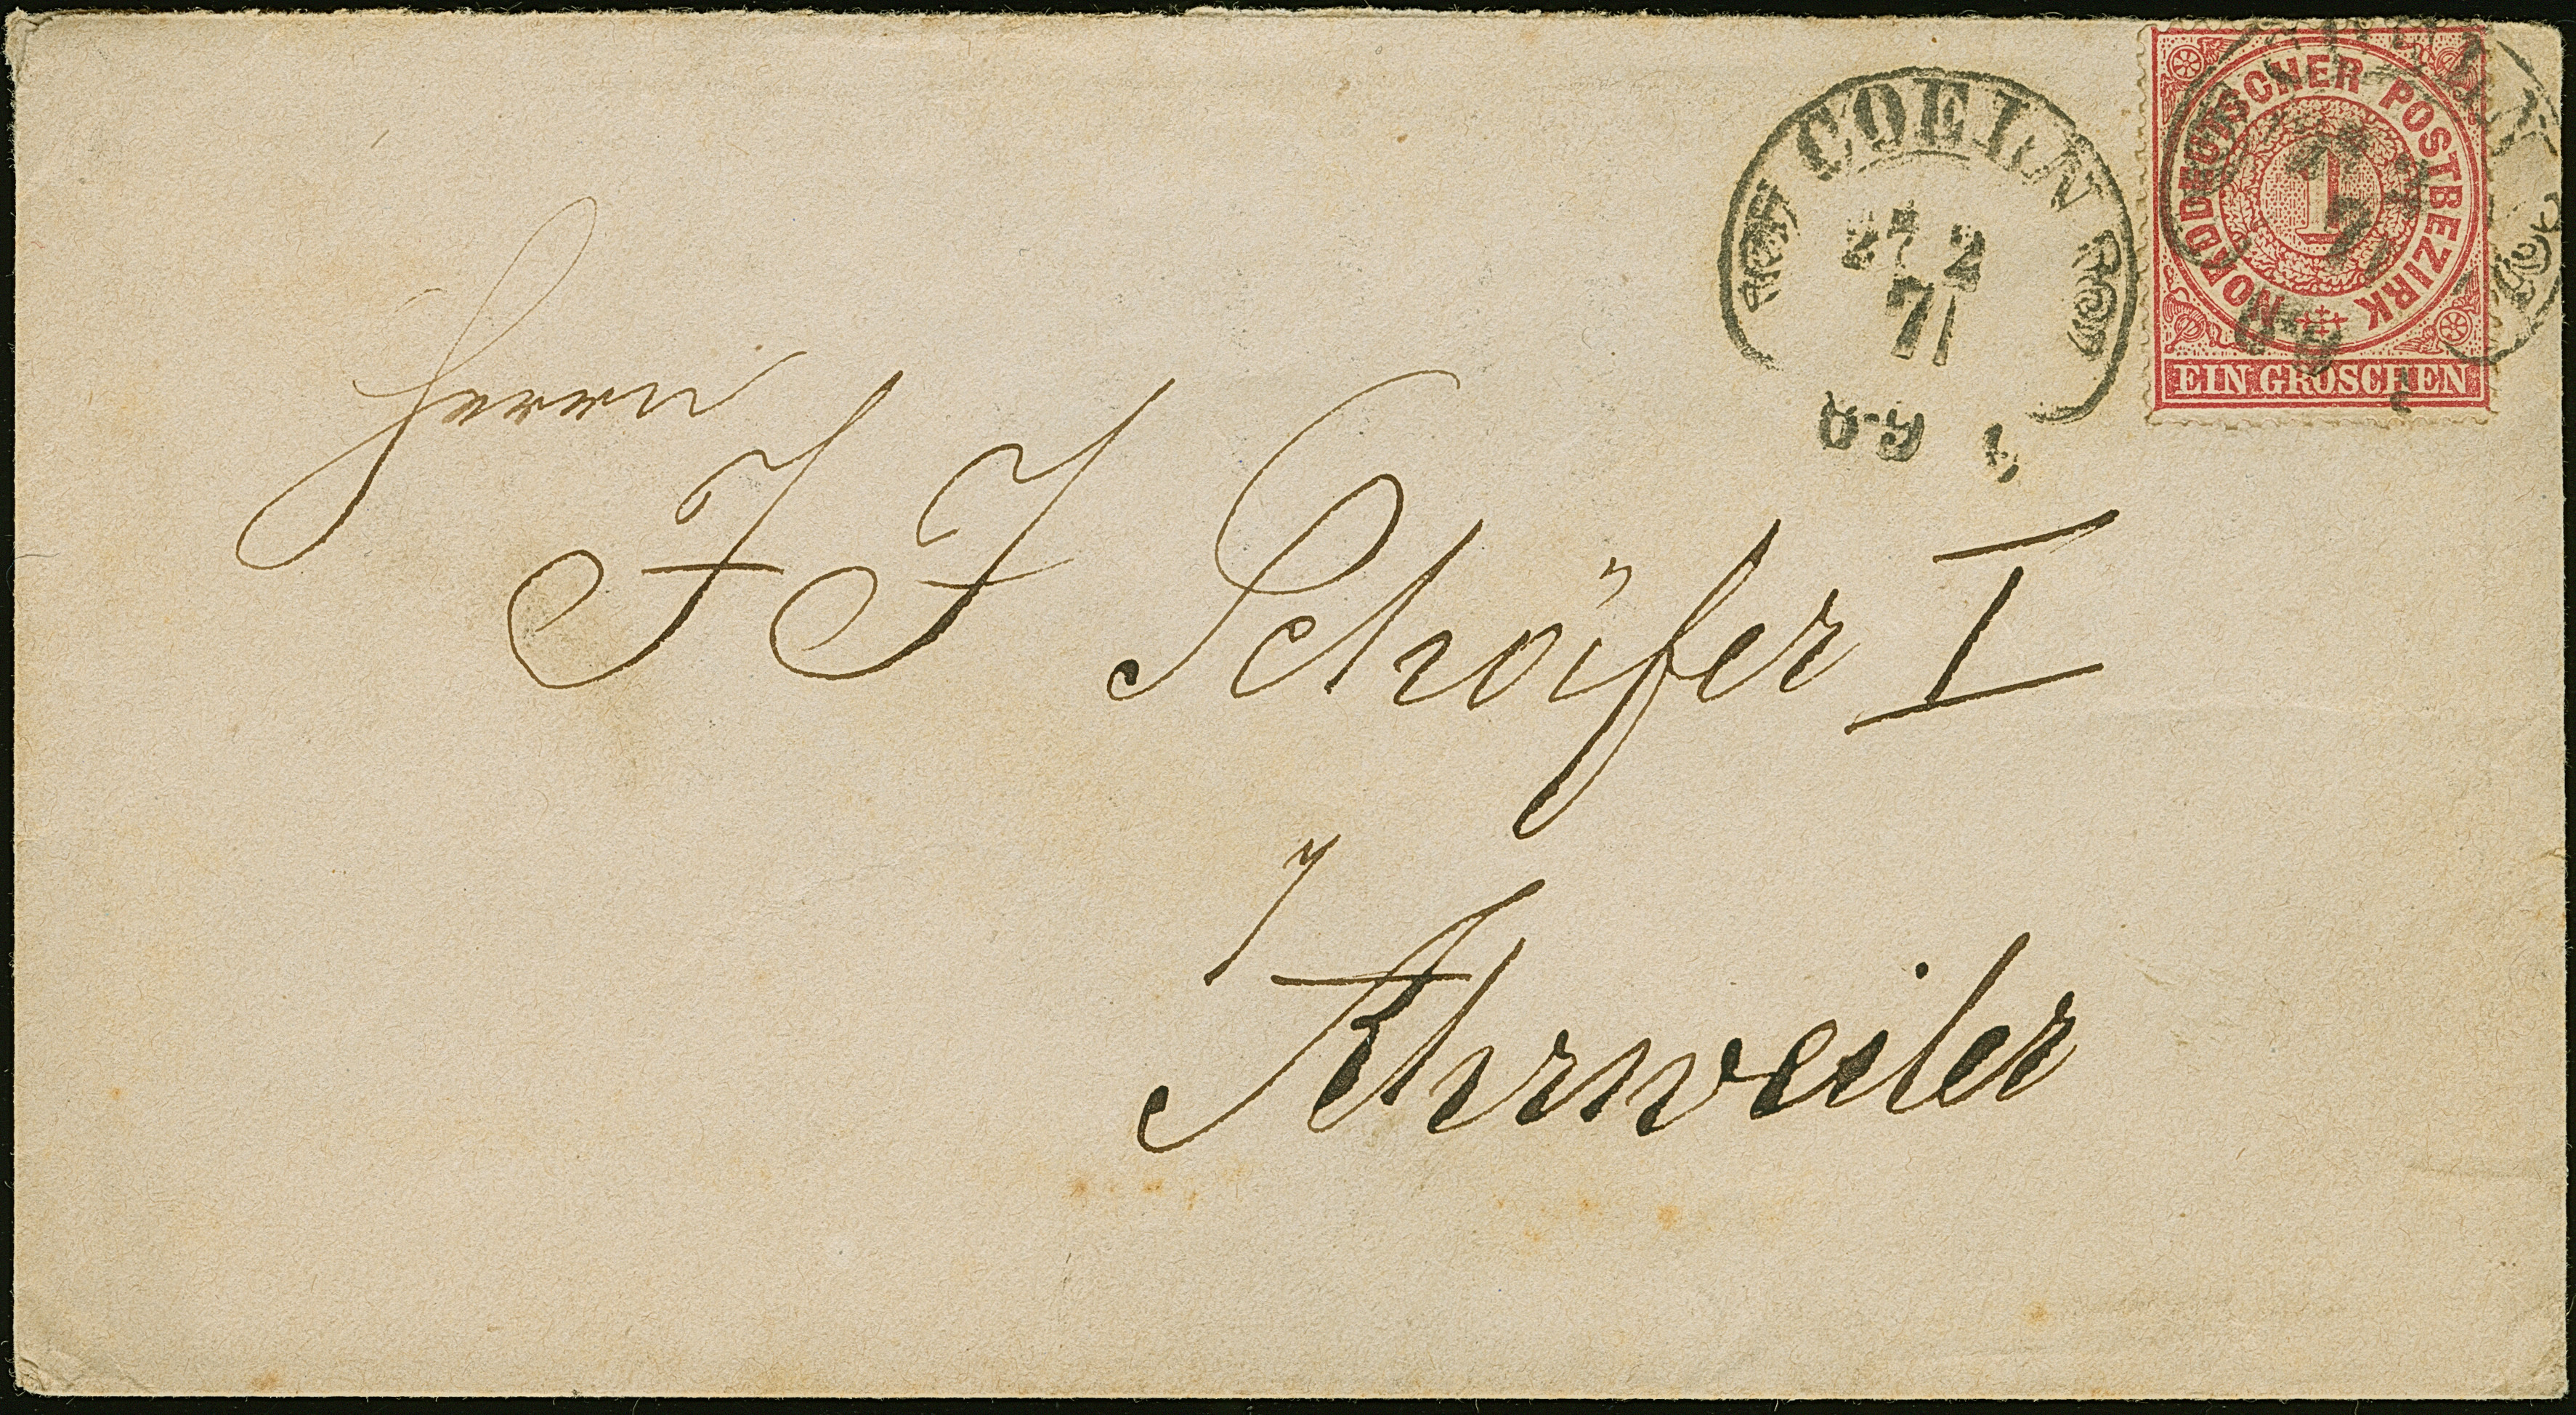 COELN
27 2
71
NORDDEUTSCHER POSTBEZIRK
1
EIN GROSCHEN
Herrn
J J Schäfer I
Ahrweiler